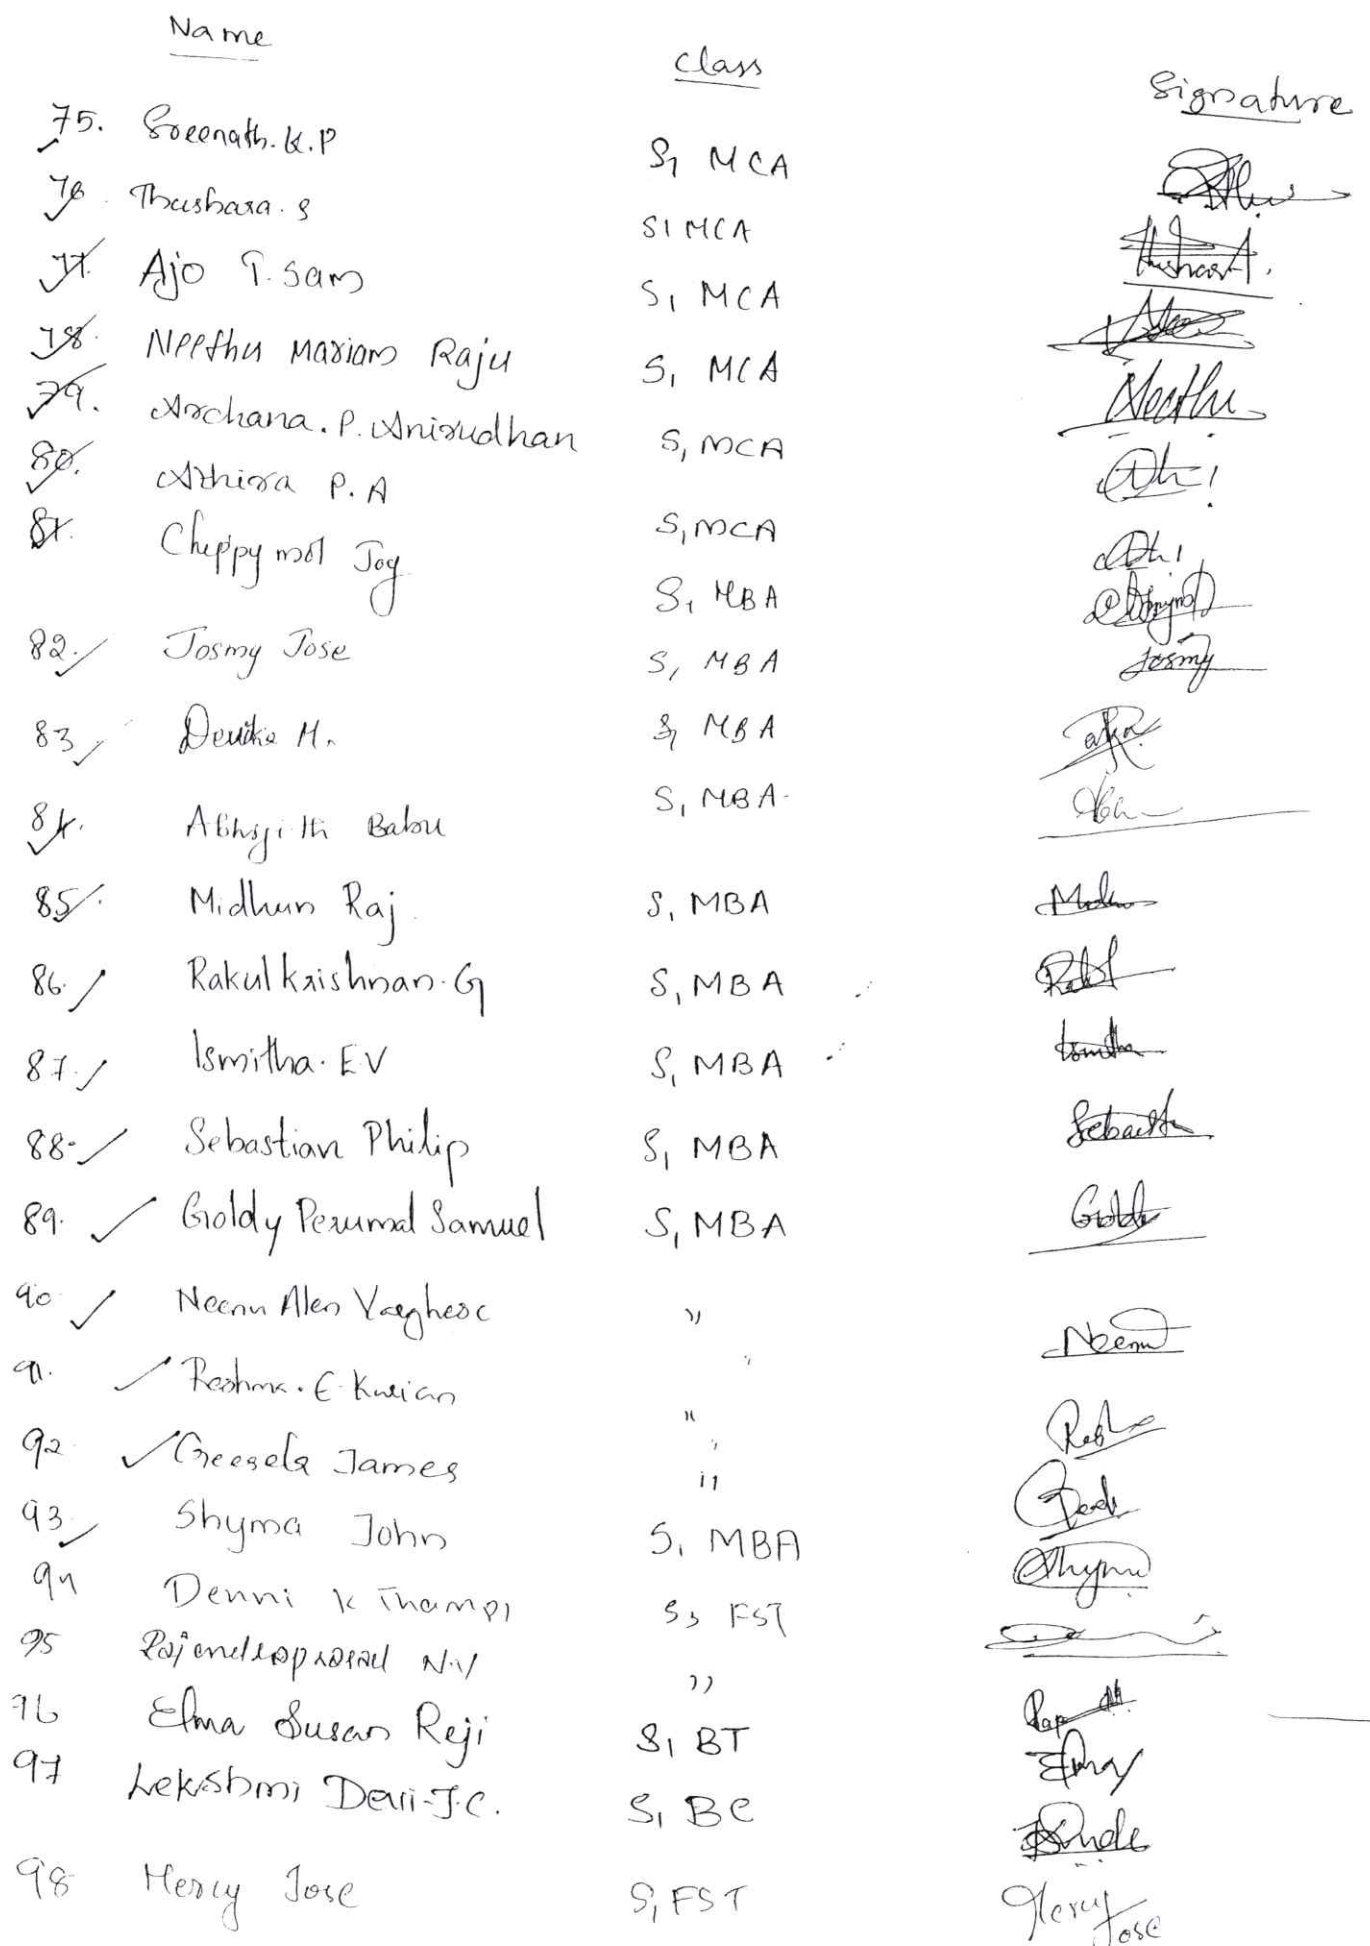 Name Class Signature
75. Sreenath.K.P S1 MCA
76. Thushara.S S1 MCA
77. Ajo T. Sam S1 MCA
78. Neethu Mariam Raju S1 MCA
79. Archana.P.Anirudhan S1 MCA Neethu
80. Athira P.A S1 MCA
81. Chippymol Joy S1 MBA
82. Josmy Jose S1 MBA Josmy
83 Devika M. S1 MBA
84. Abhijith Babu S1 MBA
85. Midhun Raj S1 MBA
86. Rakulkrishnan.G S1 MBA
87. Ismitha.EV S1 MBA Ismitha
88. Sebastian Philip S1 MBA
89. Goldy Perumal Samuel S1 MBA
90. Neenu Alen Varghese " Neenu
91. Reshma.E.Kurian "
92 James "
93 Shyma John S1 MBA
94 Denni K Thampi S3 FST
95 Rajendraprasad N.V "
96 Elma Susan Reji S1 BT
97 Lekshmi Devi.J.C. S1 BC
98 Mercy Jose S1 FST Mercy Jose